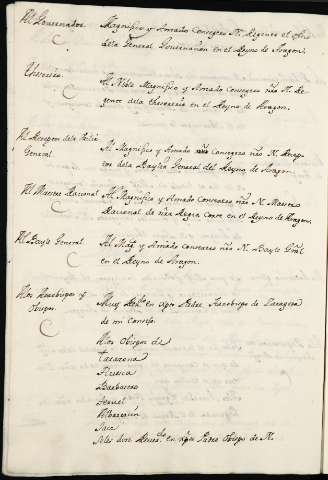 Al Governador. Magnifico y Amado Consegero N. Regente el Ofo
dela General Governacion en el Reyno de Aragon.
Thesorero. Al Noble Magnifico y Amado Consegero nro N. Re-
gente dela thesoreria en el Reyno de Aragon.
Al Receptor dela Baylia
General. Al Magnifico y Amado Consegero nro N. Recep-
tor dela Baylia General del Reyno de Aragon
Al Maestre Racional Al Magnifico y Amado Consegero nro N. Maestre
Racional de nra Regia Corte en el Reyno de Aragon.
Al Bayle General. Al Mag.co y Amado Consegero nro N. Bayle Gñal
en el Reyno de Aragon.
Alos Arzobispos y
Obispos. Muy Rdo en xpto Padre Arzobispo de Zaragoza
de mi Consejo.
Alos Obispos de
Tarazona
Huesca
Barbastro
Teruel
Albarracin
Jaca
Padre Obispo de N.